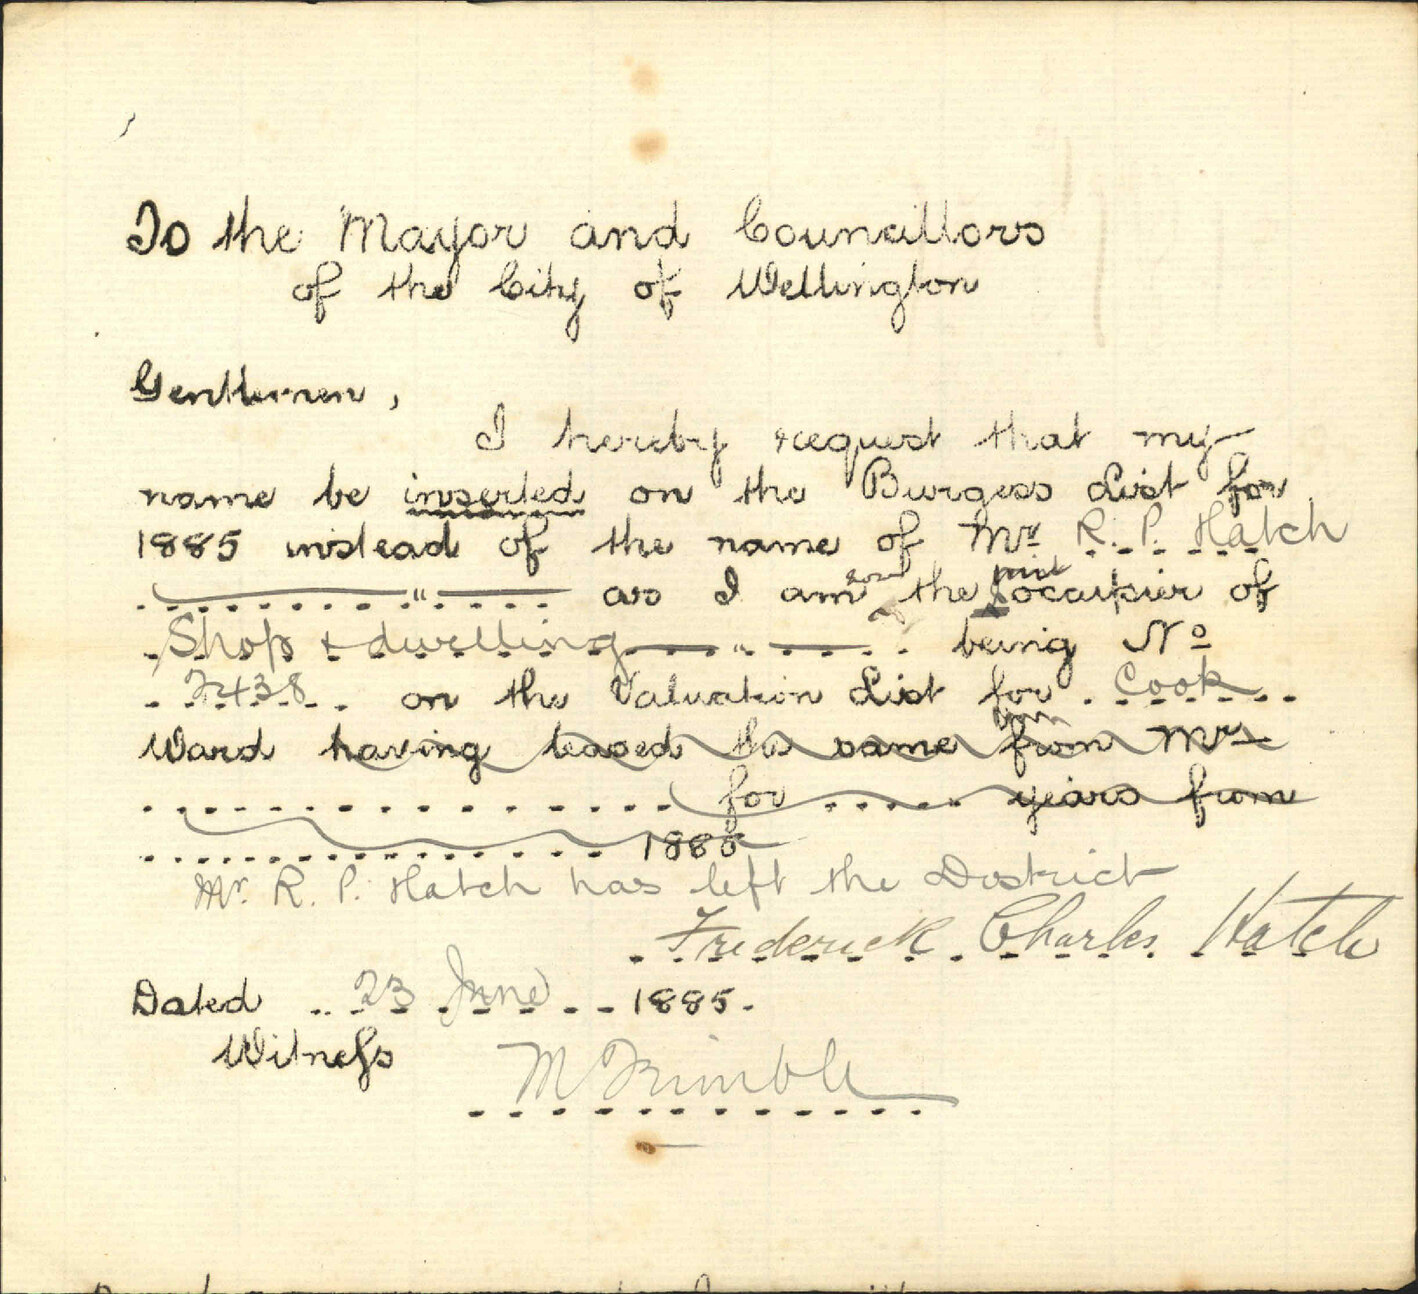 To the Mayor and Councillors
of the City of Wellington
Gentlemen,
I hereby request that my
name be inserted on the Burgess List for
1885 instead of the name of Mr R. P. Hatch
" as I am the occupier of
Shop & dwelling " being No
2438 on the Valuation List for Cook
Ward having leased the same from Mrs
for years from
1885
Mr. R. P. Hatch has left the District
Frederick Charles Hatch
Dated 23 June 1885.
Witness
M Trimble